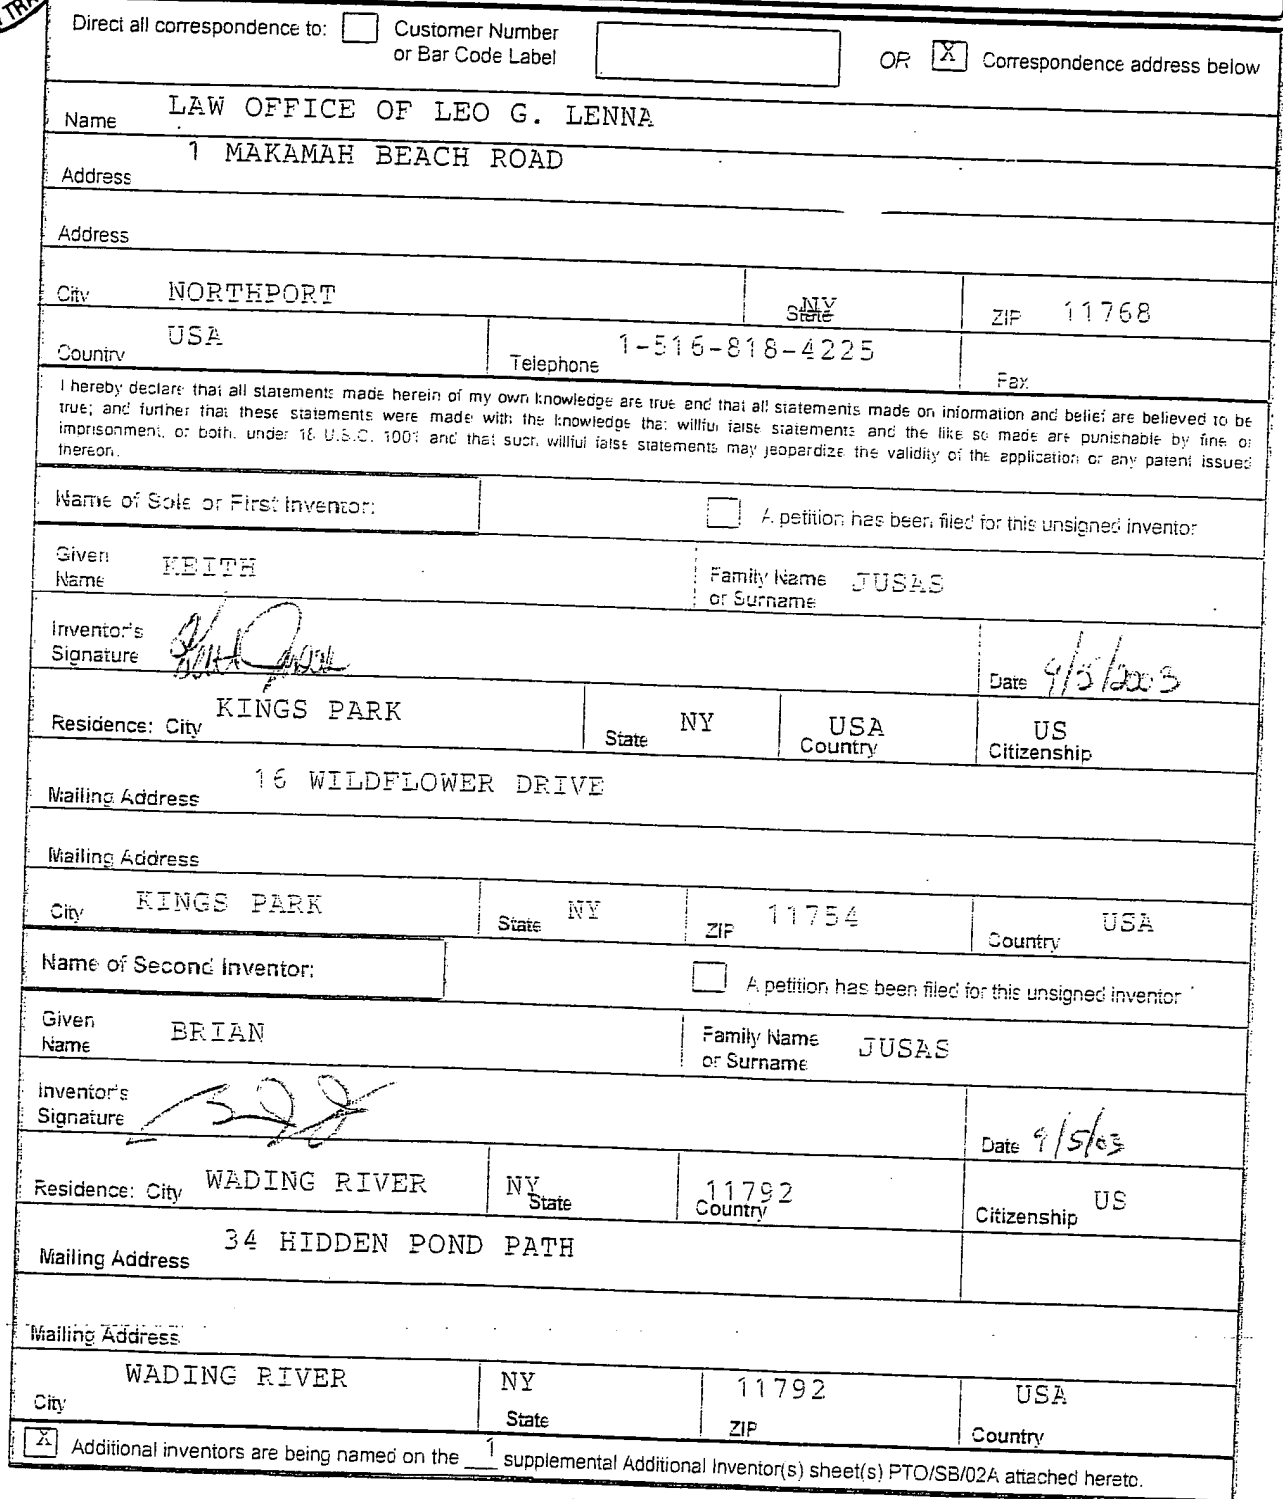 Direct all correspondence to: Customer Number or Bar Code Label OR X Correspondence address below
Name LAW OFFICE OF LEO G. LENNA
Address 1 MAKAMAH BEACH ROAD
Address
City NORTHPORT State NY ZIP 11768
Country USA Telephone 1-516-818-4225 Fax
I hereby declare that all statements made herein of my own knowledge are true and that all statements made on information and belief are believed to be
true; and further that these statements were made with the knowledge that willful false statements and the like so made are punishable by fine or
imprisonment, or both, under 18 U.S.C. 1001 and that such willful false statements may jeopardize the validity of the application or any patent issued
thereon.
Name of Sole or First Inventor: A petition has been filed for this unsigned inventor
Given Name KEITH Family Name or Surname JUSAS
Inventor's Signature Date 9/5/2003
Residence: City KINGS PARK State NY Country USA Citizenship US
Mailing Address 16 WILDFLOWER DRIVE
Mailing Address
City KINGS PARK State NY ZIP 11754 Country USA
Name of Second Inventor: A petition has been filed for this unsigned inventor
Given Name BRIAN Family Name or Surname JUSAS
Inventor's Signature Date 9/5/03
Residence: City WADING RIVER State NY Country 11792 Citizenship US
Mailing Address 34 HIDDEN POND PATH
Mailing Address
City WADING RIVER State NY ZIP 11792 Country USA
X Additional inventors are being named on the 1 supplemental Additional Inventor(s) sheet(s) PTO/SB/02A attached hereto.